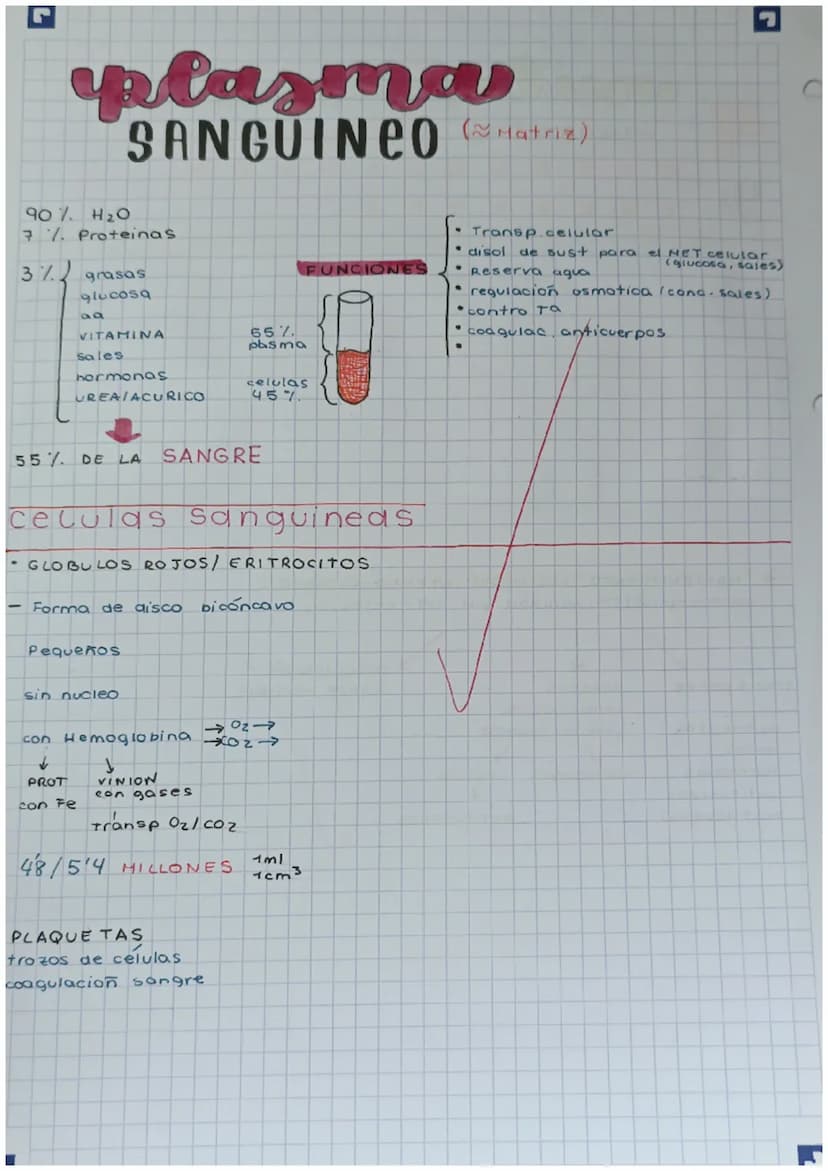 plasma
SANGUINEO (≈ Matriz)
90 % H₂O
7 % Proteinas
3 %
grasas
glucosa
aa
VITAMINA
sales
hormonas
UREA/ACURICO
55 % DE LA SANGRE
FUNCIONES
55 %
plasma
celulas
45 %
• Transp. celular
• disol de sust para el MET celular
(glucosa, sales)
• Reserva agua
• regulación osmotica (conc. sales)
• contro TA
• coagulac. anticuerpos
•
celulas sanguineas
• GLOBULOS ROJOS/ ERITROCITOS
- Forma de disco bicóncavo
Pequeños
sin nucleo
con Hemoglobina → O₂ →
→ CO₂ →
↓ ↓
PROT VINION
con Fe con gases
transp O₂/CO₂
4'8/5'4 MILLONES 1ml
1cm³
PLAQUETAS
trozos de células
coagulación sangre